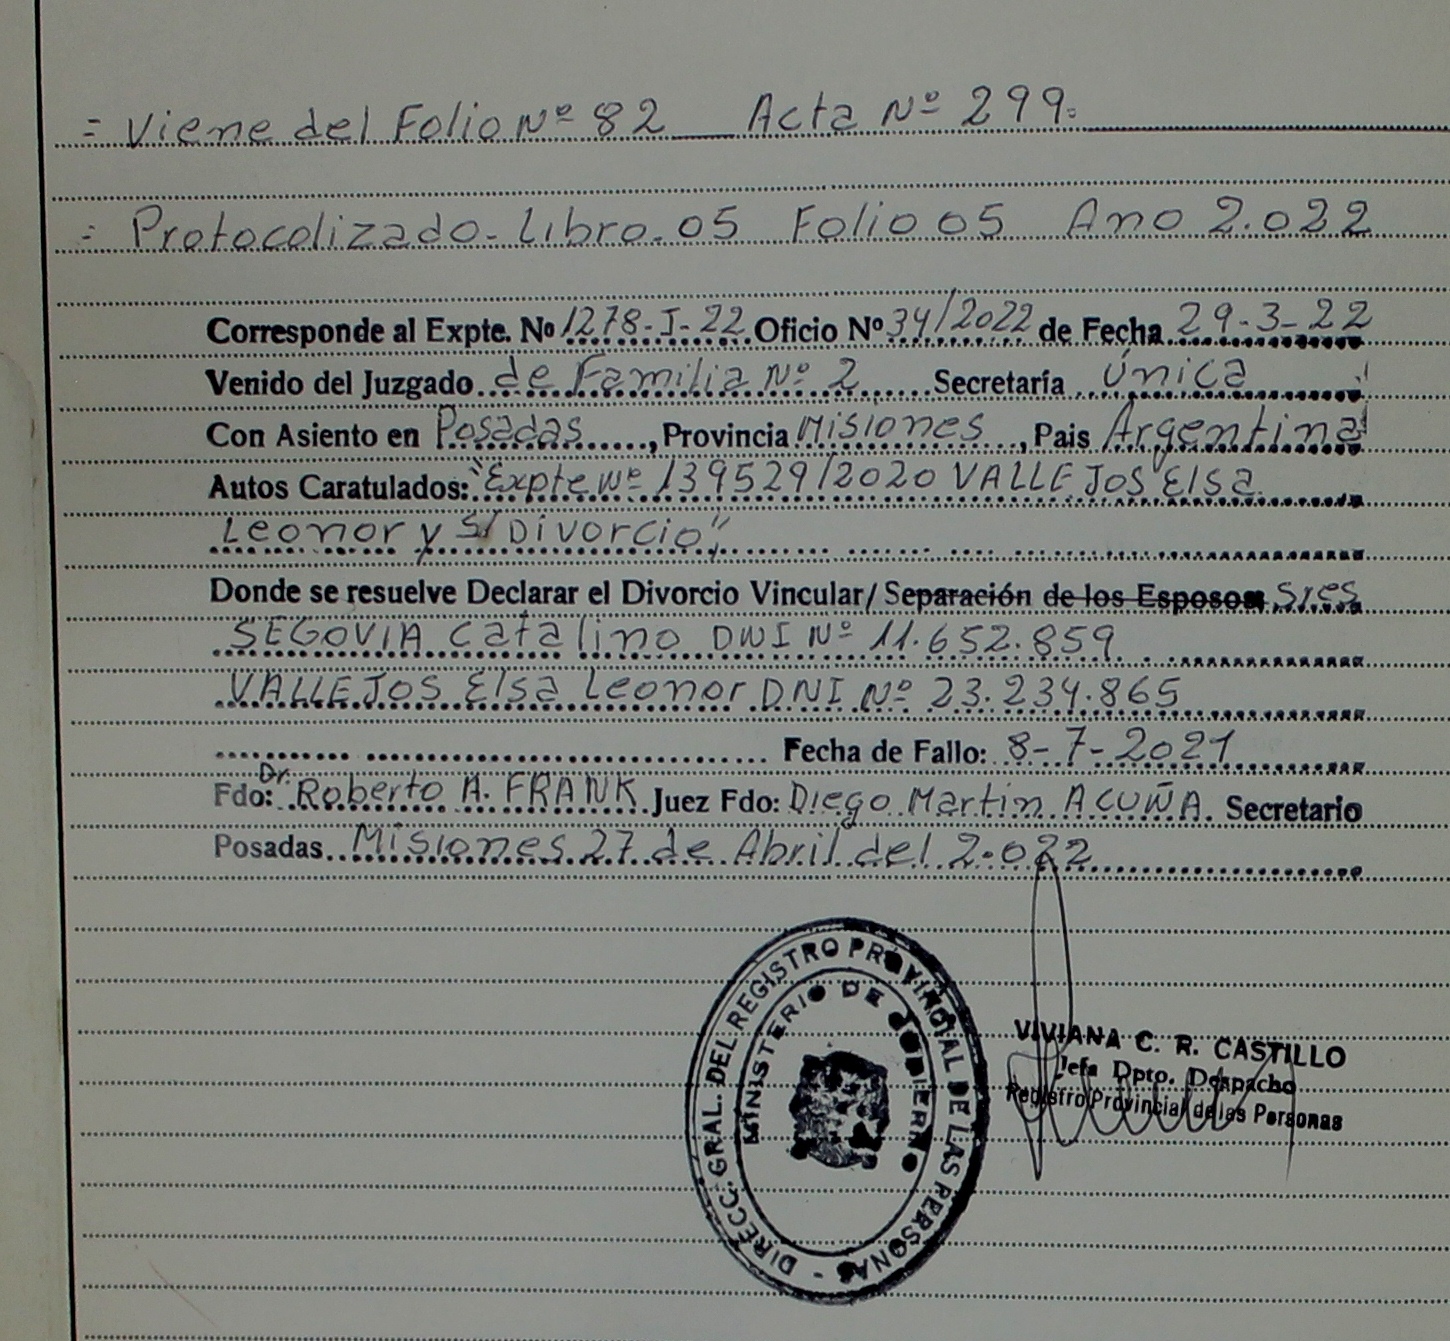 = Viene del Folio Nº 82 Acta Nº 299=
= Protocolizado - Libro - 05 Folio 05 Ano 2.022
Corresponde al Expte. Nº 1278-I-22 Oficio Nº 34/2022 de Fecha 29-3-22
Venido del Juzgado de Familia Nº 2 Secretaría Única
Con Asiento en Posadas, Provincia Misiones, Pais Argentina
Autos Caratulados: "Expte Nº 139529/2020 VALLEJOS Elsa
Leonor y S/ Divorcio"
Donde se resuelve Declarar el Divorcio Vincular/ Separación de los Esposos Sres
SEGOVIA Catalino DNI Nº 11.652.859
VALLEJOS Elsa Leonor DNI Nº 23.234.865
Fecha de Fallo: 8-7-2021
Fdo: Dr. Roberto A. FRANK Juez Fdo: Diego Martin ACUÑA. Secretario
Posadas Misiones 27 de Abril del 2.022
DIRECC. GRAL. DEL REGISTRO PROVINCIAL DE LAS PERSONAS -
MINISTERIO DE GOBIERNO
VIVIANA C. R. CASTILLO
Jefa Dpto. Despacho
Registro Provincial de las Personas